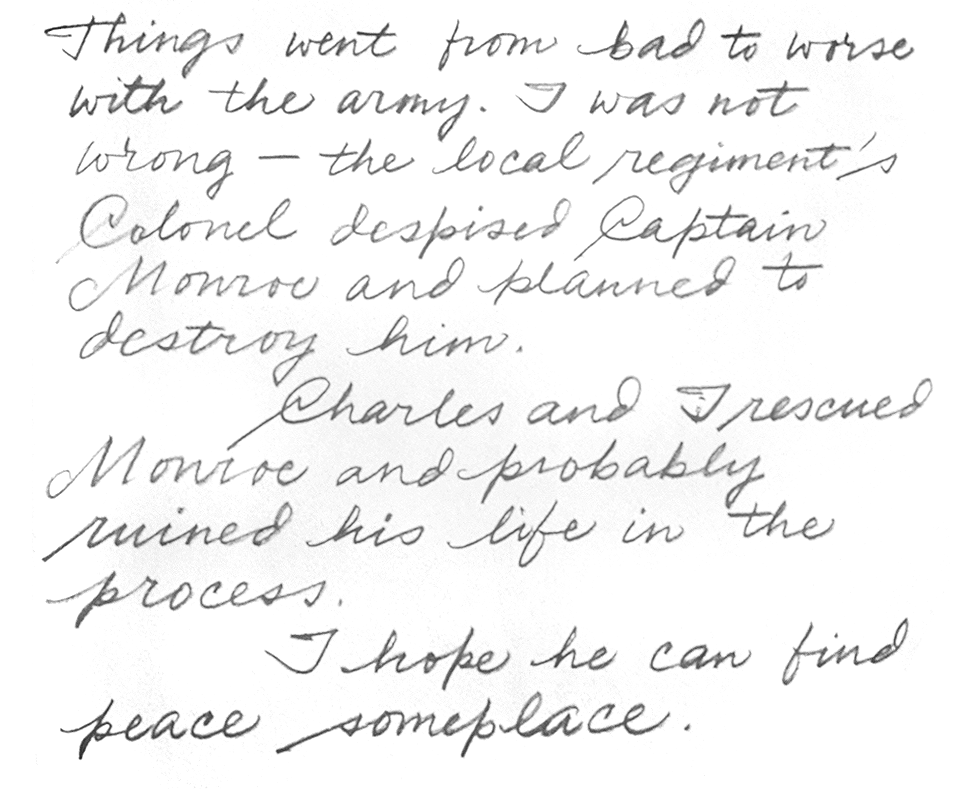 Things went from bad to worse
with the army. I was not
wrong — the local regiment's
Colonel despised Captain
Monroe and planned to
destroy him.
Charles and I rescued
Monroe and probably
ruined his life in the
process.
I hope he can find
peace someplace.